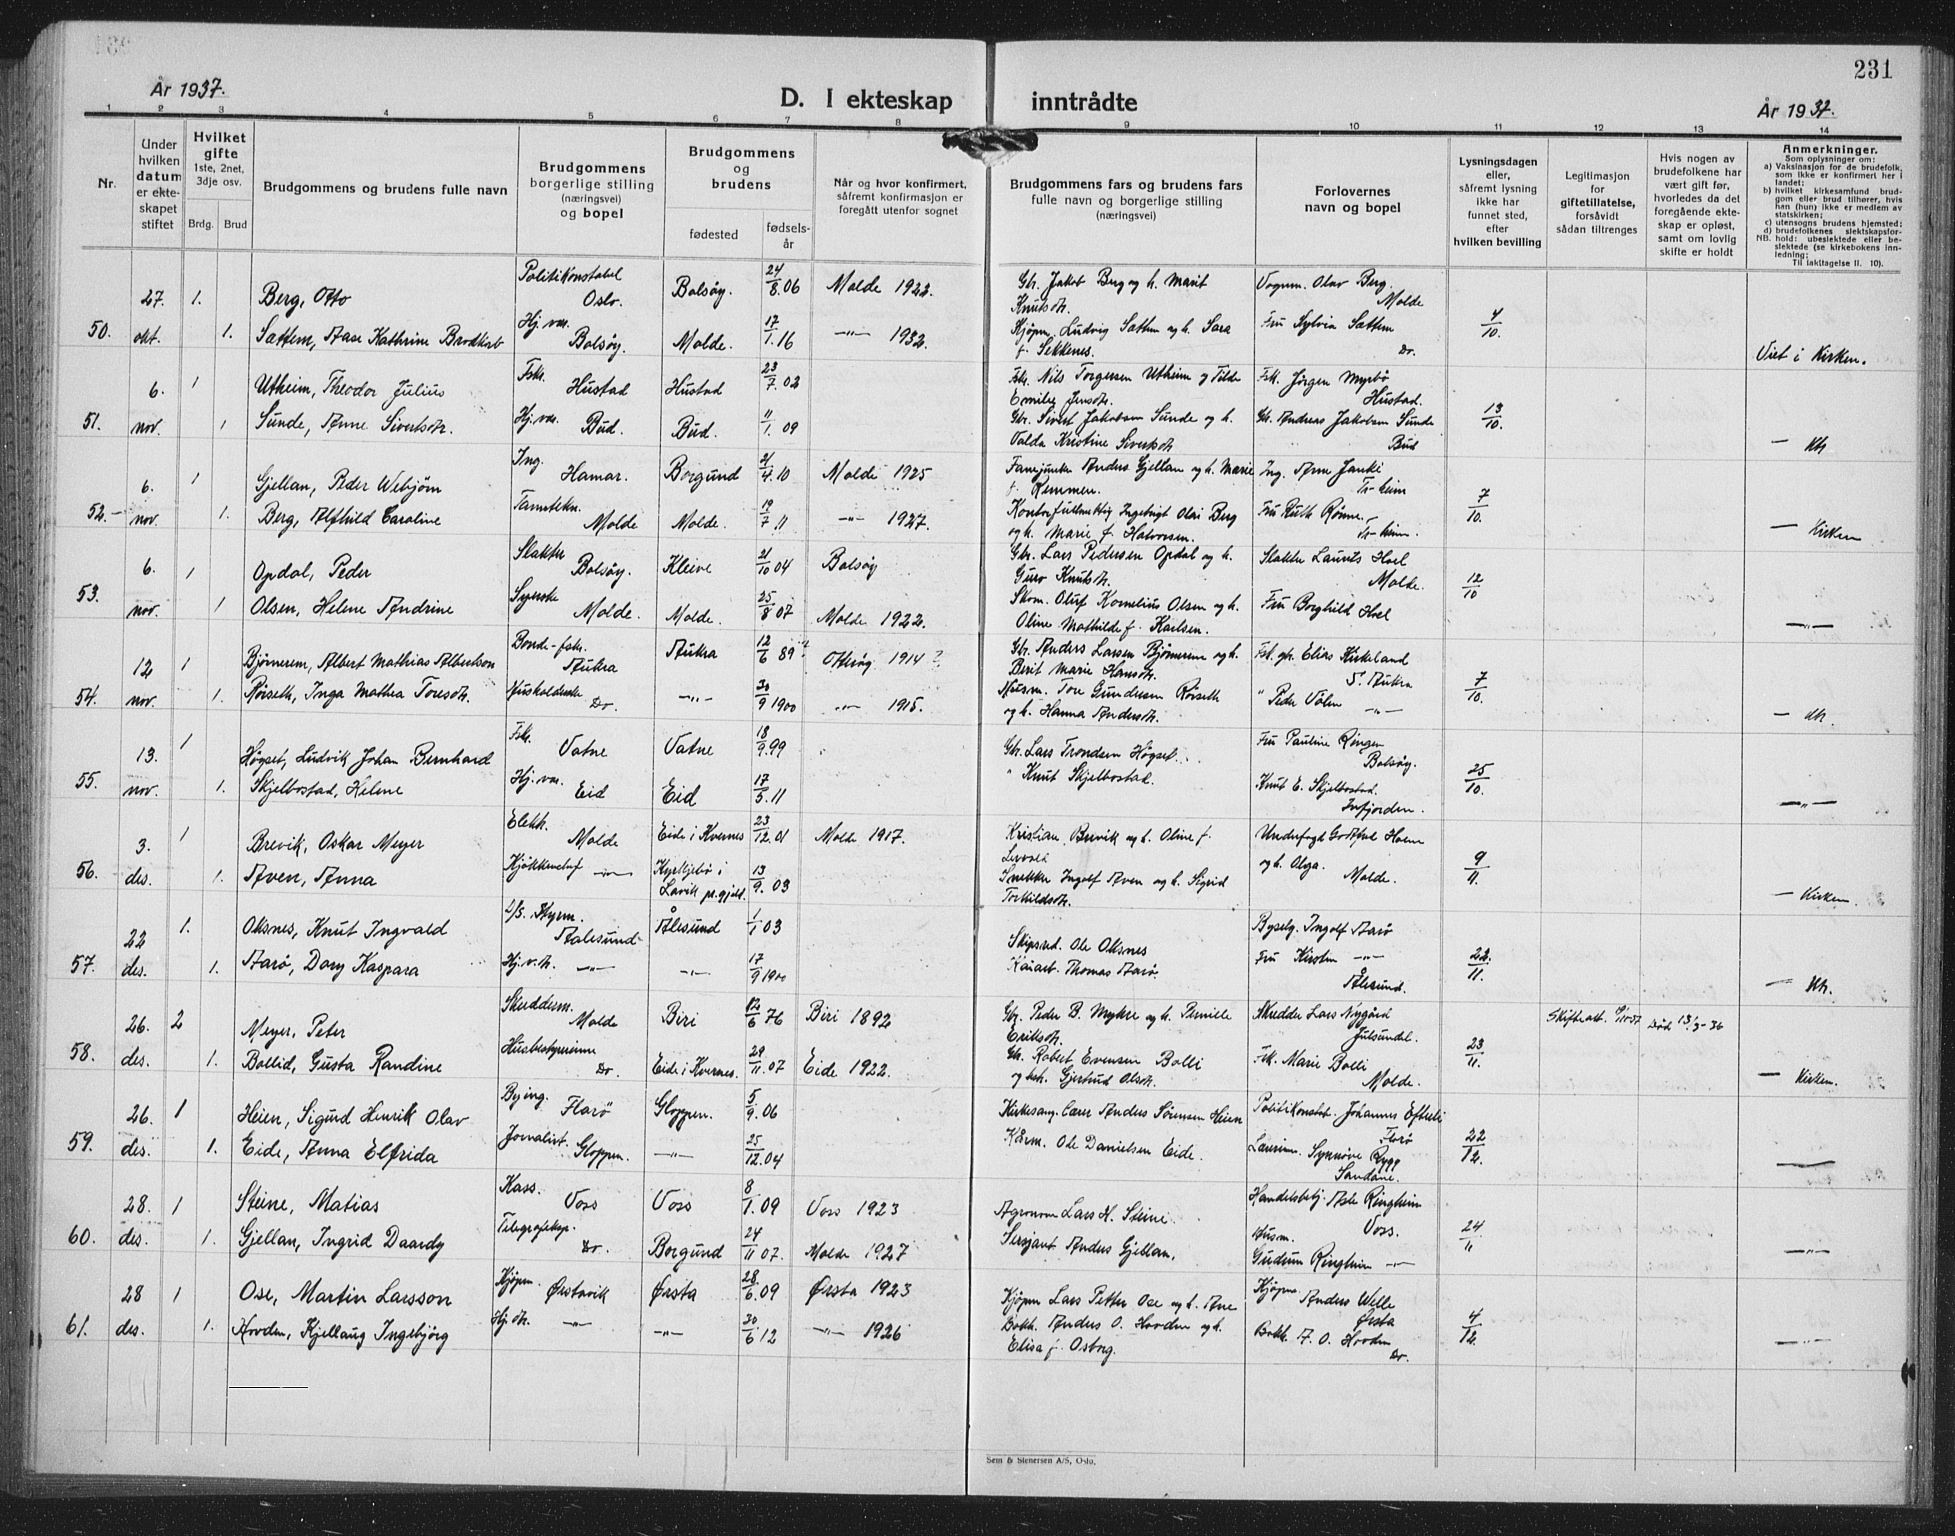 231
År 1937.
D. I ekteskap inntrådte
År 1937.
1 2 3 4 5 6 7 8 9 10 11 12 13 14
Nr.
Under hvilken datum er ekteskapet stiftet
Hvilket gifte
1ste, 2net, 3dje osv.
Brdg. Brud
Brudgommens og brudens fulle navn
Brudgommens borgerlige stilling (næringsvei) og bopel
Brudgommens og brudens
fødested
fødselsår
Når og hvor konfirmert, såfremt konfirmasjon er foregått utenfor sognet
Brudgommens fars og brudens fars fulle navn og borgerlige stilling (næringsvei)
Forlovernes navn og bopel
Lysningsdagen eller, såfremt lysning ikke har funnet sted, efter hvilken bevilling
Legitimasjon for giftetillatelse, forsåvidt sådan tiltrenges
Hvis nogen av brudefolkene har vært gift før, hvorledes da det foregående ekteskap er opløst, samt om lovlig skifte er holdt
Anmerkninger.
Som oplysninger om:
a) Vaksinasjon for de brudefolk, som ikke er konfirmert her i landet;
b) hvilket kirkesamfund brudgom eller brud tilhører, hvis han (hun) ikke er medlem av statskirken;
c) utensogns brudens hjemsted;
d) brudefolkenes slektskapsforhold: ubeslektede eller beslektede (se kirkebokens innledning;
NB.
Til iakttagelse II. 10).
50. 27. okt. 1. Berg, Otto Politikonstabel Oslo. Bolsøy. 24/8.06 Molde 1922. Gbr. Jakob Berg og h. Marit Knutsdtr. Vognm. Olav Berg. Molde
1. Sættem, Aase Kathrine Brodtkorb Hj.vær. Bolsøy. Molde. 17/1.16 —"— 1932. Kjøpm. Ludvig Sættem og h. Sara f. Sekkenes. Fru Sylvia Sættem Do. 4/10 Viet i Kirken.
51. 6. nov. 1 Utheim, Theodor Julius Fsk. Hustad Hustad 23/7.02 Fsk. Nils Torgersen Utheim og Tilde Emilie Jensdtr. Fsk. Jørgen Myrbø Hustad.
1 Sunde, Anne Sivertsdtr. Hj.vær. Bud. Bud. 11/1.09 Gbr. Sivert Jakobsen Sunde og h. Valda Kristine Sivertsdtr. Gbr. Andreas Jakobsen Sunde Bud 13/10. — Kh
52. 6. nov. 1 Gjellan, Peder Webjørn Ing. Hamar. Borgund 21/4.10 Molde 1925 Fanejunker Anders Gjellan og h. Marie f. Remmen. Ing. Arne Janki Tr-heim
1. Berg, Alfhild Caroline Tanntekn. Molde Molde. 19/7.11 —"— 1927. Kontorfullmektig Ingebrigt Olai Berg og h. Marie f. Halvorsen. Fru Ruth Rønne. Tr-heim. 7/10. — Kirken
53. 6. nov. 1 Opdal, Peder Slakter Bolsøy. Kleive 21/10 04 Bolsøy Gbr. Lars Pedersen Opdal og h. Guro Knutsdtr. Slakter Laurits Hoel Molde.
1 Olsen, Helene Andrine Syerske Molde. Molde. 25/8 07 Molde 1922. Skom. Oluf Kornelius Olsen og h. Oline Mathilde f. Karlsen. Fru Borghild Hoel 12/10 —"—
54. 12 nov. 1 Bjørnerem, Albert Mathias Albertson Bonde-fsk. Aukra Aukra 12/6 89? Otterøy 1914? Gbr. Anders Larsen Bjørnerem og h. Berit Marie Hansdtr. Fsk. gbr. Elias Kirkeland S. Aukra
1. Rørseth, Inga Mathea Toresdtr. Husholderske Do. —"— 30/9 1900 —"— 1915. Husm. Tore Gundersen Rørseth og h. Hanna Andersdtr. " Peder Vålen —"— 7/10. — Kh.
55. 13. nov. 1 Høgset, Ludvik Johan Bernhard Fsk. Vatne Vatne 18/9.99 Gbr. Lars Trondsen Høgset. Fru Pauline Ringen Bolsøy.
1. Skjelbostad, Helene Hj.vær. Eid Eid 17/5.11 " Knut Skjelbostad. Knut E. Skjelbostad. Innfjorden. 25/10. —"—
56. 3. des. 1 Brevik, Oskar Meyer Elektr. Molde Eide i Kvernes 23/12.01 Molde 1917. Kristian Brevik og h. Oline f. Underfogd Gotthard Holm og h. Olga. Molde.
1. Aven, Anna Kjøkkenchef —"— Kyrkjebø i Lavik pr.gjeld. 13/9.03 Snekker Ingolf Aven og h. Sigrid Torkildsdtr. 9/11. — Kirken.
57. 22 des. 1. Oksnes, Knut Ingvald D/S. Styrm. Aalesund Ålesund 1/1 03 Skipsred. Ole Oksnes Byselg. Ingolf Aarø
1. Aarø, Dory Kaspara Hj.v.h. —"— —"— 17/9 1900 Kaiarb. Thomas Aarø. Fru Kirsten —"— Ålesund. 22/11. — Kh.
58. 26. des. 2 Meyer, Peter Skredderm. Molde Biri 12/6 76 Biri 1892 Gbr. Peder B. Mykre og h. Pernille Eriksdtr. Skredder Lars Nygård Julsundet. Skifteatt. Død 13/3-36
1. Bollid, Gusta Randine Husbestyrerinne Do. Eide i Kvernes. 29/11.07 Eide 1922. Gbr. Robert Evensen Bolli og h. Gjertrud Olsdtr. Frk. Marie Bolli Molde. 23/11. — Kirken.
59. 26. des. 1 Heien, Sigurd Henrik Olav Bying. Florø Gloppen. 5/9.06 Kirkesang. Lærer Anders Sørensen Heien Politikonstab. Johannes Eftreli Florø
1. Eide, Anna Elfrida Jornalist. Gloppen. —"— 25/12.04 K. Ole Danielsen Eide. Lærerinne Synnøve Rygg Sandane. 22/12. —"—
60. 28. des. 1 Steine, Matias Kass. Voss Voss 8/1.09 Voss 1923 Agronom Lars H. Steine. Handelsbetj. Asle Ringheim Voss.
1. Gjellan, Ingrid Daardy Telegrafeksp. Do. Borgund 24/11 07. Molde 1927 Sersjant Anders Gjellan. Husm. Gudrun Ringheim —"— 24/11 —"—
61. 28 des. 1 Ose, Martin Larsson Kjøpm. Ørstavik Ørsta 28/6.09 Ørsta 1923 Kjøpm Lars Petter Ose og h. Ane Kjøpm. Anders Welle Ørsta
1. Hovden, Kjellaug Ingebjørg Hj.dtr. —"— —"— 20/6 12 —"— 1926 Bokh. Anders O. Hovden og h. Elisa f. Osborg. Bokh. A. O. Hovden Do. 4/12. —"—
Sem & Stenersen A/S, Oslo.